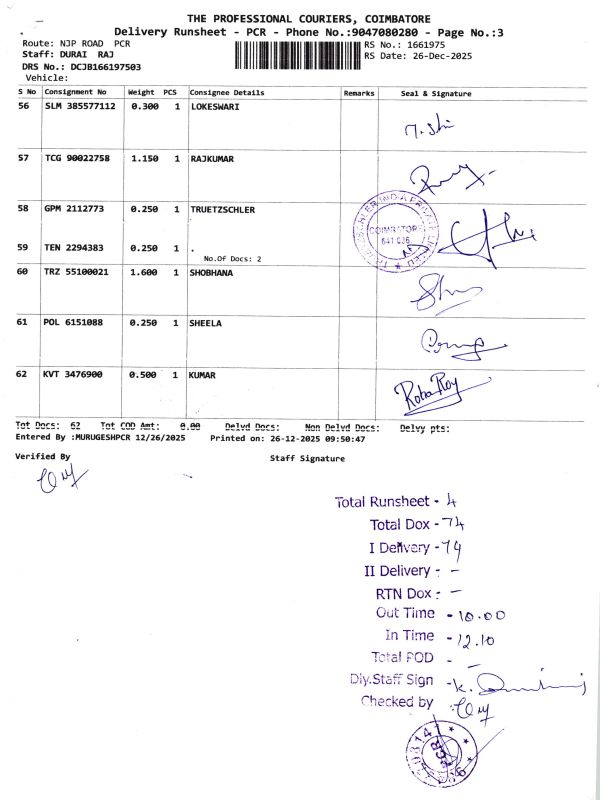 THE PROFESSIONAL COURIERS, COIMBATORE
Delivery Runsheet - PCR - Phone No.:9047080280 - Page No.:3
Route: NJP ROAD PCR
RS No.: 1661975
Staff: DURAI RAJ
RS Date: 26-Dec-2025
DRS No.: DCJB166197503
Vehicle:
S No Consignment No Weight PCS Consignee Details Remarks Seal & Signature
56 SLM 385577112 0.300 1 LOKESWARI
57 TCG 90022758 1.150 1 RAJKUMAR
58 GPM 2112773 0.250 1 TRUETZSCHLER
COIMBATORE
641 036
59 TEN 2294383 0.250 1 .
No.Of Docs: 2
60 TRZ 55100021 1.600 1 SHOBHANA
61 POL 6151088 0.250 1 SHEELA
62 KVT 3476900 0.500 1 KUMAR
RobaRoy
Tot Docs: 62 Tot COD Amt: 0.00 Delvd Docs: Non Delvd Docs: Delvy pts:
Entered By :MURUGESHPCR 12/26/2025 Printed on: 26-12-2025 09:50:47
Verified By Staff Signature
Total Runsheet - 4
Total Dox - 74
I Delivery - 74
II Delivery - -
RTN Dox - -
Out Time - 10.00
In Time - 12.10
Total POD - -
Dly.Staff Sign -
Checked by
PCR